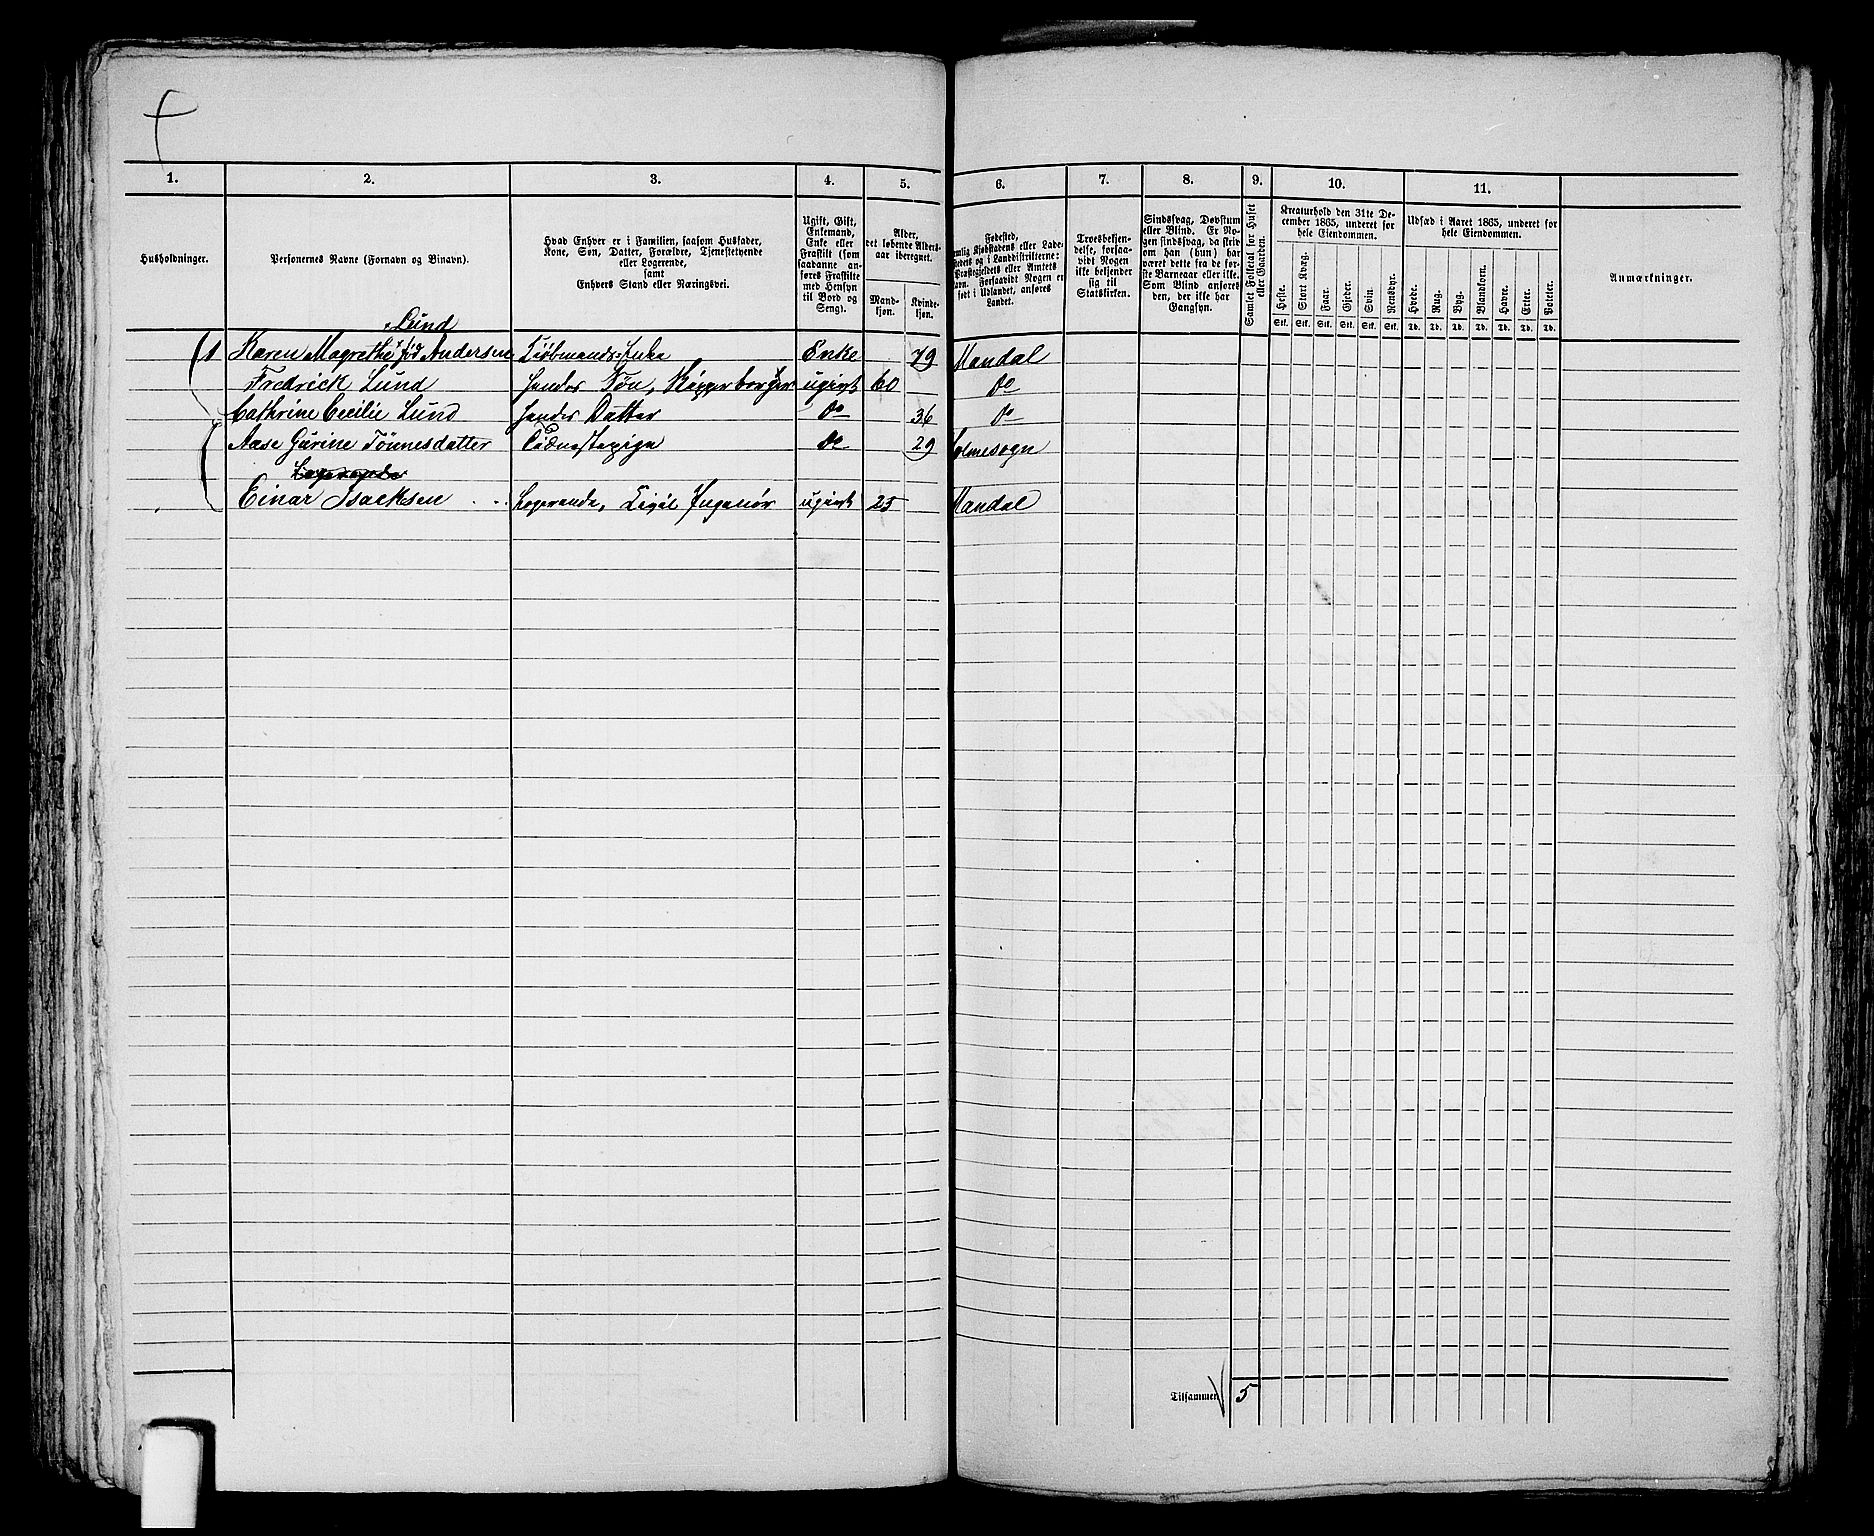 1. 2. 3. 4. 5. 6. 7. 8. 9. 10. 11.
Husholdninger.
Personernes Navne (Fornavn og Binavn).
Hvad Enhver er i Familien, saasom Husfader,
Kone, Søn, Datter, Forældre, Tjenestetyende
eller Logerende,
samt
Enhvers Stand eller Næringsvei.
Ugift, Gift,
Enkemand,
Enke eller
Fraskilt (som
saadanne an-
føres Fraskilte
med Hensyn
til Bord og
Seng).
Alder,
det løbende Alders-
aar iberegnet.
Mand-
kjøn.
Kvinde-
kjøn.
Fødested,
nemlig Kjøbstadens eller Lade-
stedets og i Landdistrikterne:
Præstegjeldets eller Amtets
Navn. Forsaavidt Nogen er
født i Udlandet, anføres
Landet.
Troesbekjen-
delse, forsaa-
vidt Nogen
ikke bekjender
sig til
Statskirken.
Sindssvag, Døvstum
eller Blind. Er No-
gen sindssvag, da skriv
om han (hun) har
været dette fra de før-
ste Barneaar eller ikke.
Som Blind anføres
den, der ikke har
Gangsyn.
Samlet Folketal for Huset
eller Gaarden.
Kreaturhold den 31te De-
cember 1865, underet for
hele Eiendommen.
Heste. Stort Kvæg. Faar. Gjeder. Svin. Rensdyr.
Stk. Stk. Stk. Stk. Stk. Stk.
Udsæd i Aaret 1865, underet for
hele Eiendommen.
Hvede. Rug. Byg. Blandkorn. Havre. Erter. Poteter.
Td. Td. Td. Td. Td. Td. Td.
Anmærkninger.
Lund
1 Karen Magrethe fød Andersen Kiøbmands Enke Enke 79 Mandal
Fredrick Lund Hendes Søn, Skipperborger ugivt 60 do
Cathrine Cecilie Lund Hendes Datter do 36 do
Aase Gurine Tönnesdatter Tiænestepige do 29 Holmesogn
Logerende
Einar Isacksen Logerende, Civil Ingeniør ugivt 25 Mandal
Tilsammen 5